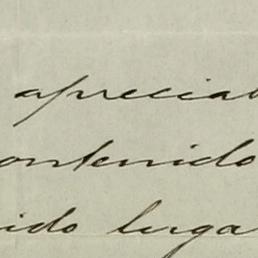 apreciab
ontenido
ido luga